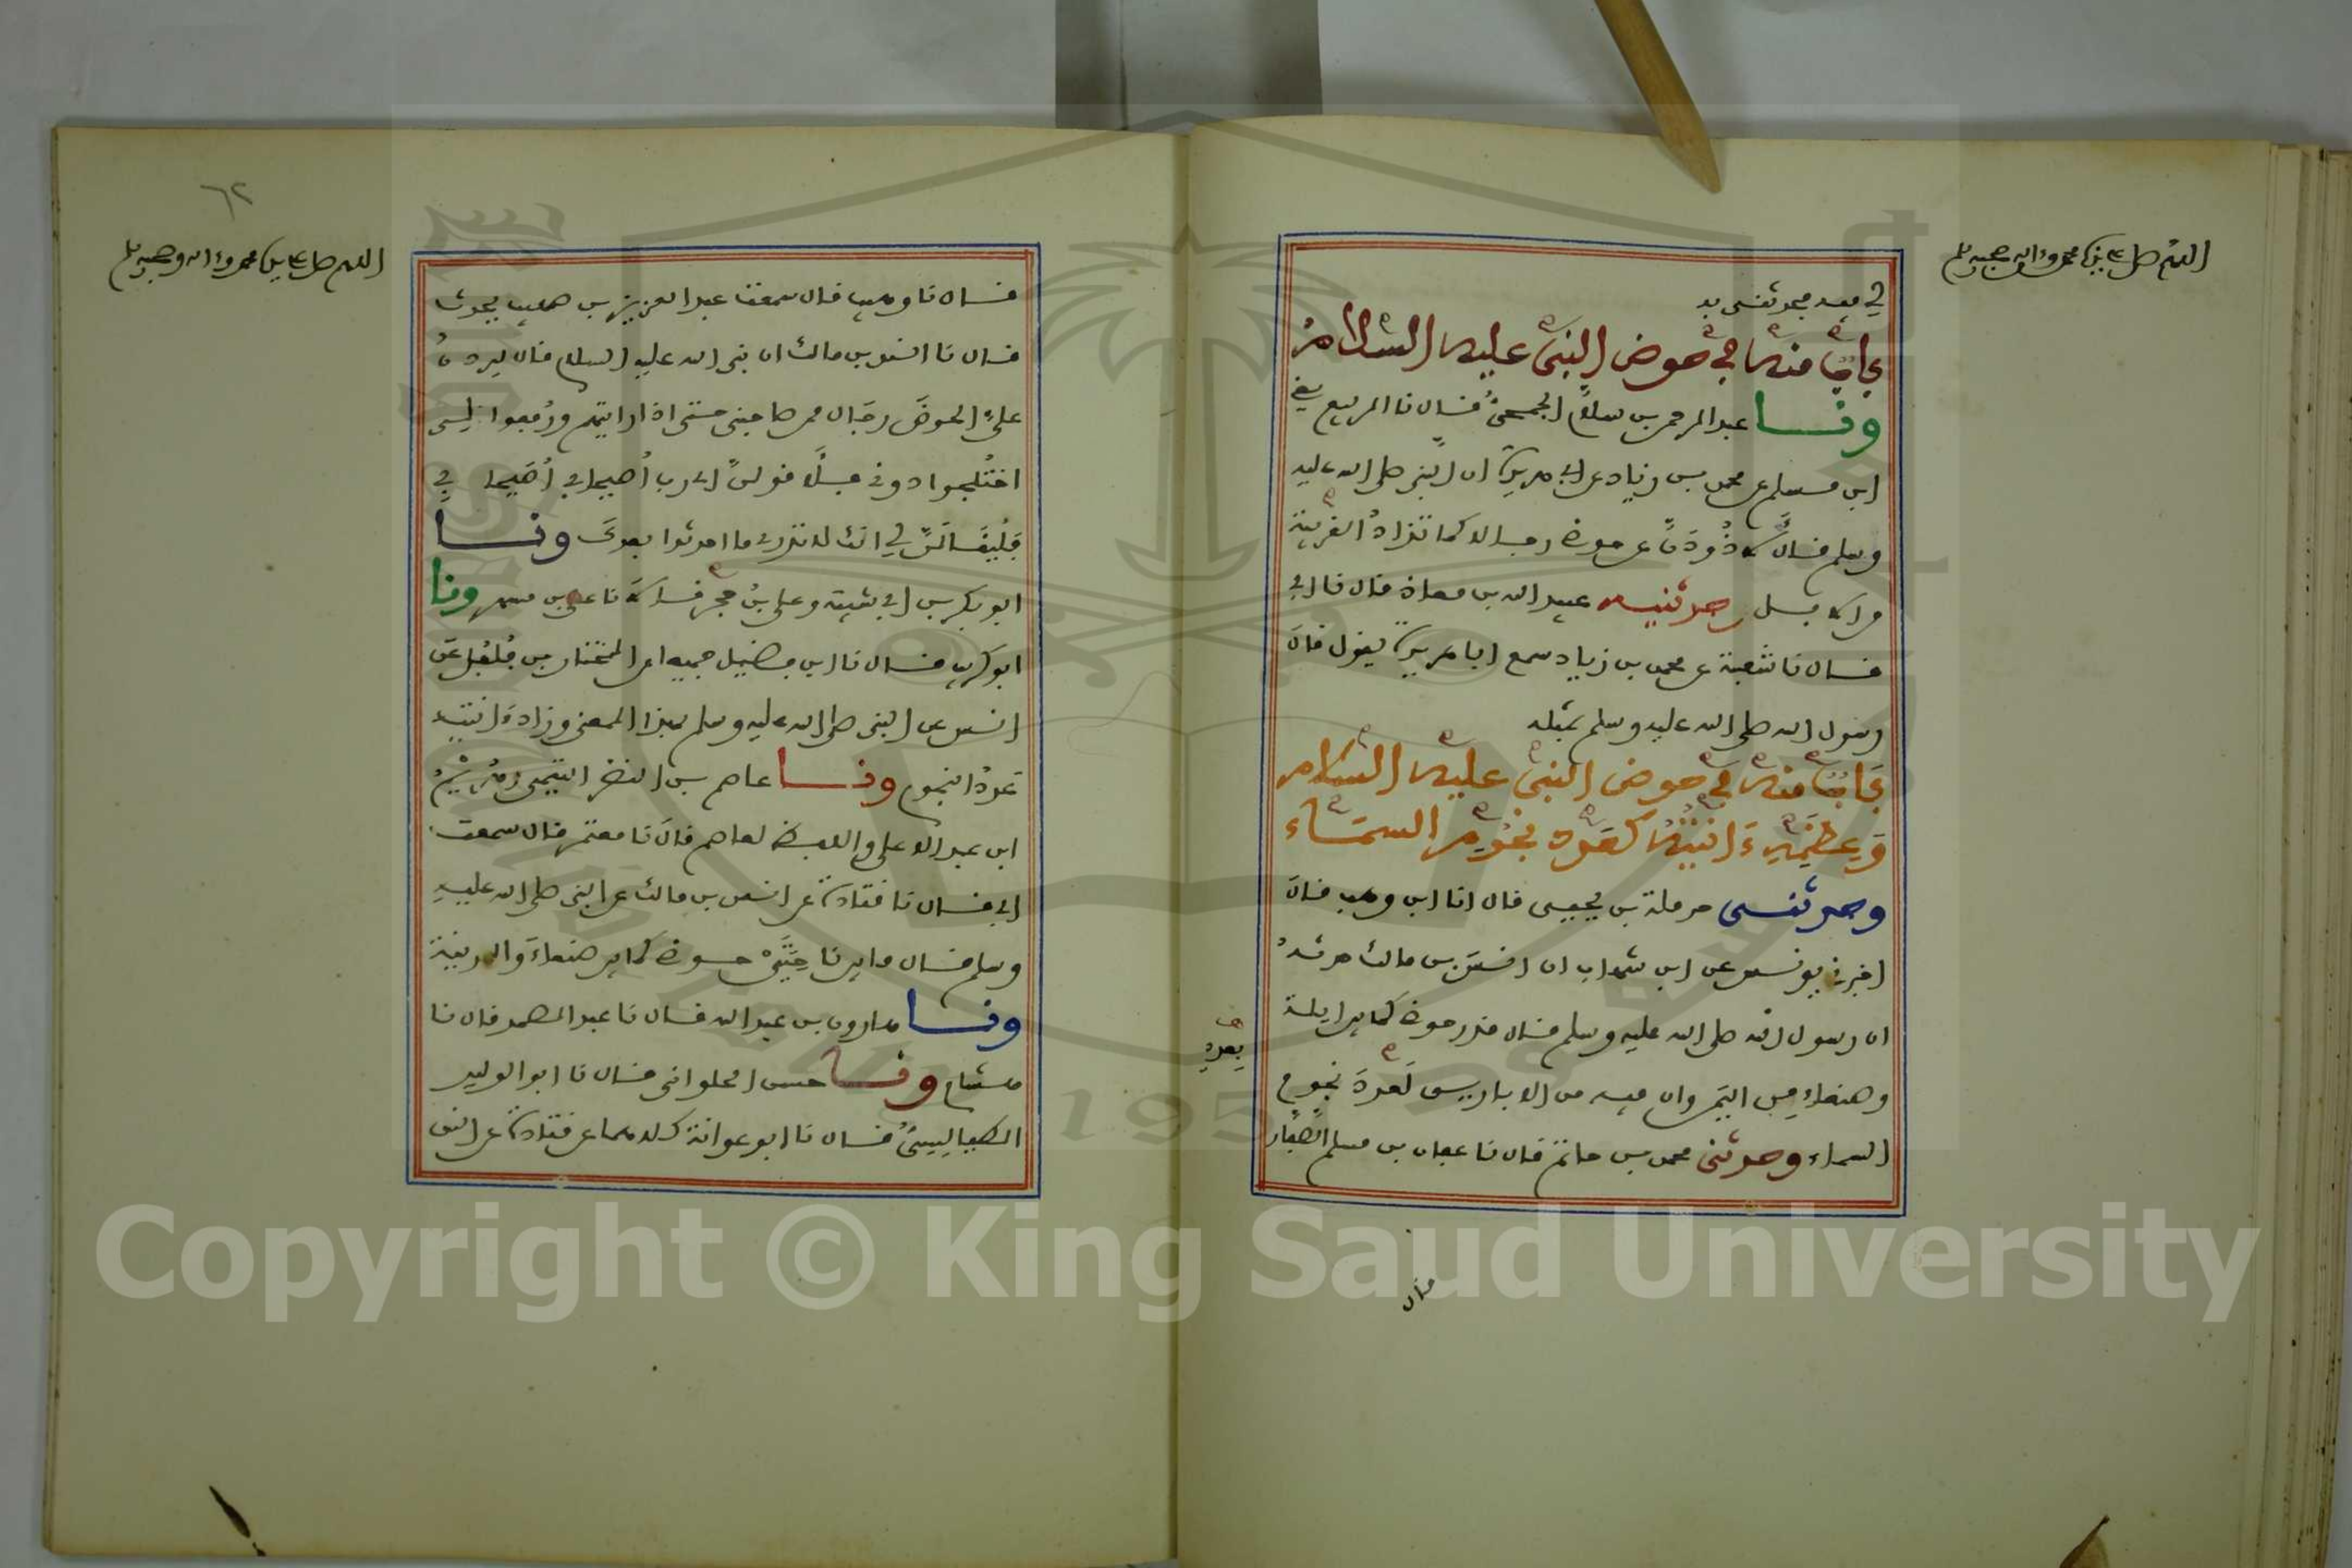 اللهم صل على نبينا محمد وءاله وصحبه وسلم
لي فيه فحدثني به
باب منه في حوض النبي عليه السلام
ونا عبد الرحمن بن سلام الجمحي قال نا الربيع يعني
ابن مسلم عن محمد بن زياد عن ابي هريرة ان النبي صلى الله عليه
وسلم قال لاذودن عن حوضي رجالا كما تذاد الغريبة
من الابل حدثنيه عبيد الله بن معاذ قال نا ابي
قال نا شعبة عن محمد بن زياد سمع ابا هريرة يقول قال
رسول الله صلى الله عليه وسلم بمثله
باب منه في حوض النبي عليه السلام
وعظمه وءانيته كعدد نجوم السماء
وحدثني حرملة بن يحيى قال انا ابن وهب قال
اخبرني يونس عن ابن شهاب ان انس بن مالك حدثه
ان رسول الله صلى الله عليه وسلم قال قدر حوضي كما بين ايلة
وصنعاء من اليمن وان فيه من الاباريس كعدد نجوم
السماء وحدثني محمد بن حاتم قال نا عفان بن مسلم الصفار
بعدد
قال
٦٢
اللهم صل على نبينا محمد وءاله وصحبه وسلم
قال نا وهيب قال سمعت عبد العزيز بن صهيب يحدث
قال نا انس بن مالك ان نبي الله عليه السلام قال ليردن
علي الحوض رجال ممن صاحبني حتى اذا رايتهم ورفعوا الي
اختلجوا دوني فلاقولن اي رب اصيحابي اصيحابي
فليقالن لي انك لا تدري ما احدثوا بعدك ونا
ابو بكر بن ابي شيبة وعلي بن حجر قالا نا علي بن مسهر ونا
ابو كريب قال نا ابن فضيل جميعا عن المختار بن فلفل عن
انس عن النبي صلى الله عليه وسلم بهذا المعنى وزاد ءانيته
عدد النجوم ونا عاصم بن النضر التيمي وهريم
ابن عبد الاعلى واللفظ لعاصم قال نا معتمر قال سمعت
ابي قال نا قتادة عن انس بن مالك عن النبي صلى الله عليه
وسلم قال ما بين ناحيتي حوضي كما بين صنعاء والمدينة
ونا هارون بن عبد الله قال نا عبد الصمد قال نا
هشام ونا حسن الحلواني قال نا ابو الوليد
الطيالسي قال نا ابو عوانة كلاهما عن قتادة عن انس
Copyright © King Saud University
1957